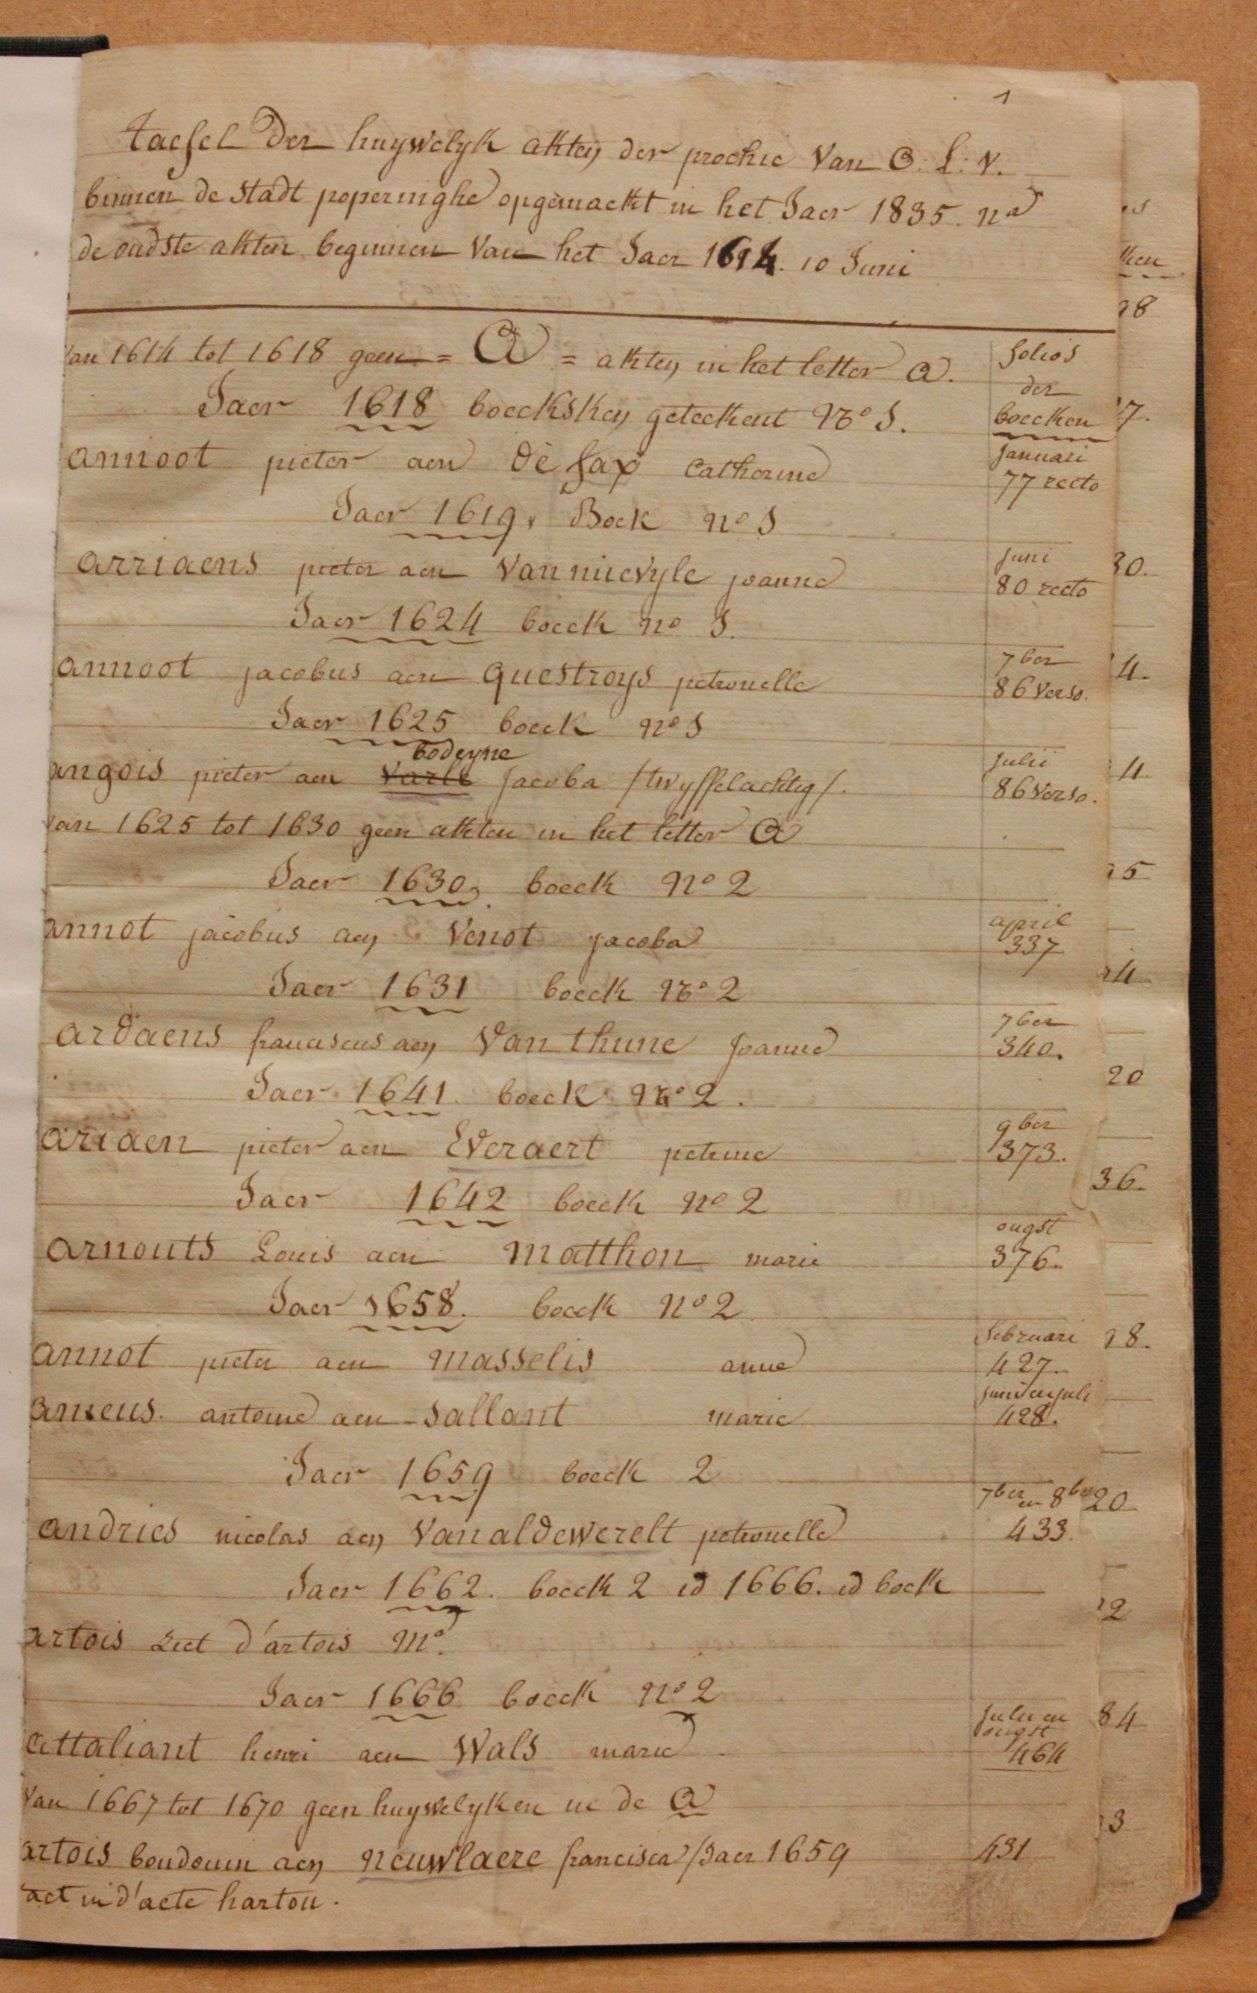 1
taefel der huywelyk akten der prochie van O. L. V.
binnen de stadt poperinghe opgemaekt in het Jaer 1835. na
de oudste akten beginnen van het Jaer 1614. 10 Juni
van 1614 tot 1618 geen = A = akten in het letter A.
folios der boecken
Jaer 1618 boecksken geteekent No 1.
annoot pieter aen de fax catherine
januari 77 recto
Jaer 1619. Boek no 1
arriaens pieter aen Vannuevyle joanne
juni 80 recto
Jaer 1624 boeck no 1.
annoot jacobus aen questroys petronelle
7ber 86 verso.
Jaer 1625 boeck no 1
bodeyne
angois pieter aen varle jacoba /twyffelachtig/.
julii 86 verso.
van 1625 tot 1630 geen akten in het letter A
Jaer 1630. boeck No 2
annot jacobus aen Venot jacoba
april 337
Jaer 1631 boeck No 2
ardaens franciscus aen Van thune Joanne
7ber 340.
Jaer 1641. boeck No 2.
ariaen pieter aen Everaert petrine
9ber 373.
Jaer 1642 boeck no 2
arnouts Louis aen matthon marie
ougst 376.
Jaer 1658. boeck No 2
annot pieter aen masselis anne
februari 427.
antoine aen sallant marie
juni en juli 428.
Jaer 1659 boeck 2
andries nicolas aen Van aldewerelt petronelle
7ber en 8ber 433.
Jaer 1662. boeck 2 id 1666. id boek
artois siet d'artois
Jaer 1666 boeck No 2
attaliant henri aen Wals marie
julii en ougst 464
Van 1667 tot 1670 geen huywelyken in de A
artois boudouin aen neuwlaere francisca /Jaer 1659
431
act in d'acte hartou.